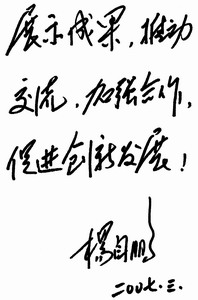 展示成果，推动
交流，加强合作，
促进创新发展！
杨自鹏
二〇〇七.三.